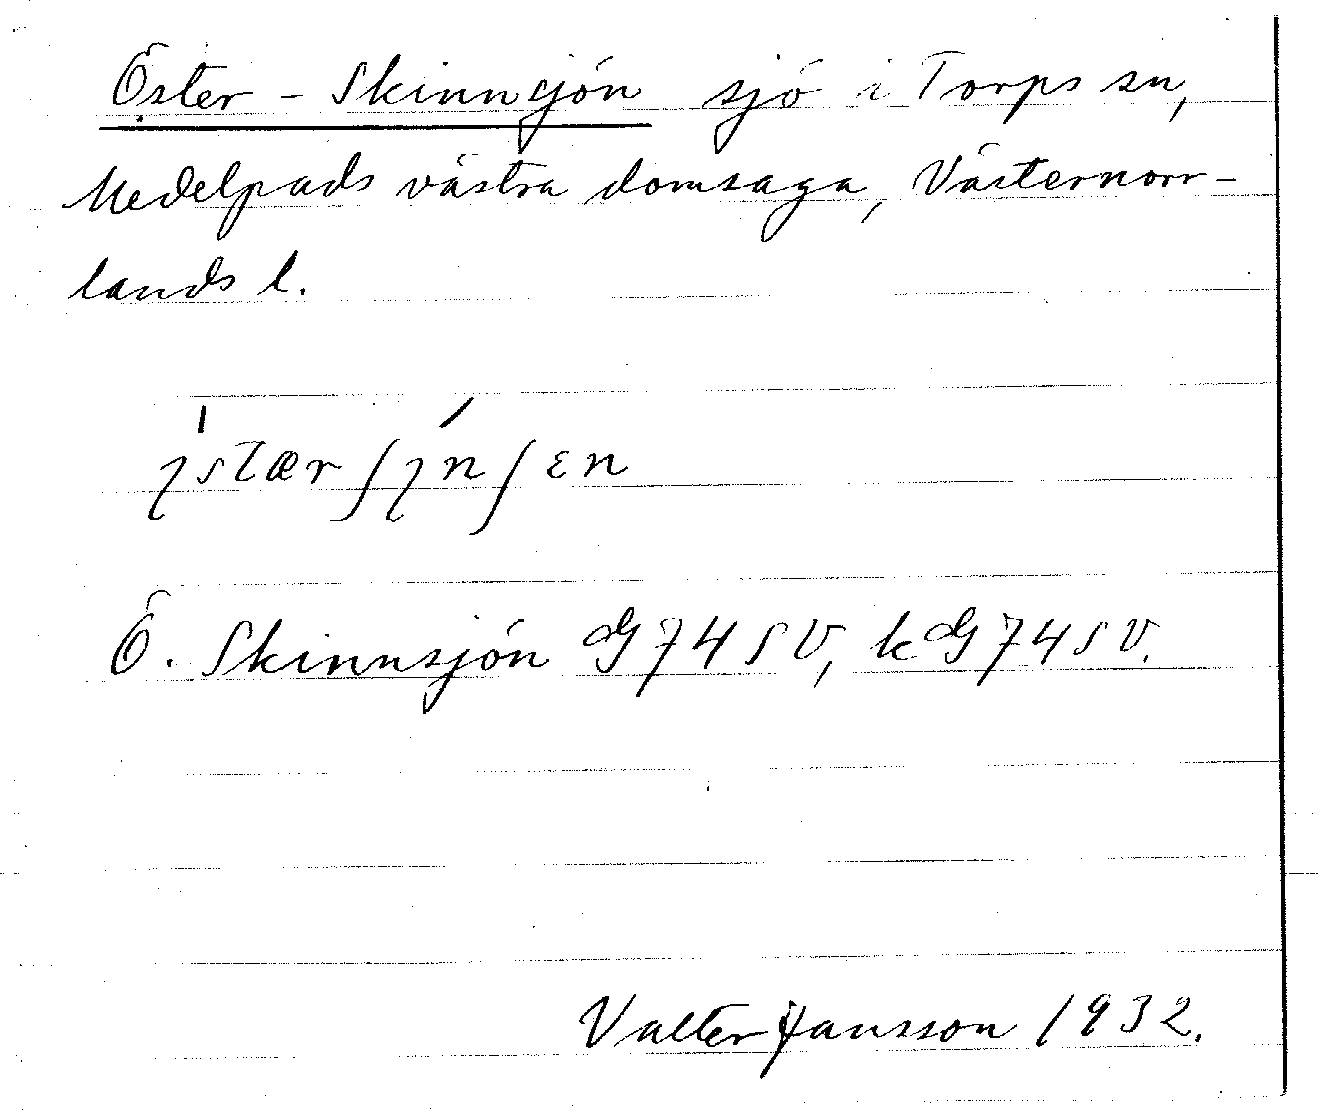 Öster-Skinnsjön sjö i Torps sn,
Medelpads västra domsaga, Västernorr-
lands l.
Ö. Skinnsjön G 74 SV, kG 74 SV.
Valter Jansson 1932.